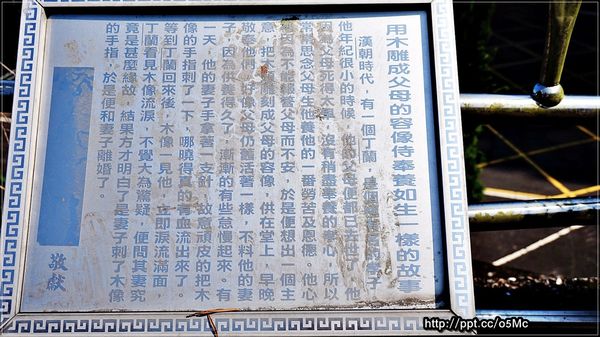 用木雕成父母的容像侍奉養如生一樣的故事
漢朝時代，有一個丁蘭，是個
他年紀很小的時候，他的父母便都已去世了，他
因為父母死得太早，沒有稍盡奉養的孝心，所以
常常思念父母生他養他的一番勞苦及恩德。他心
為不能報答父母而不安，於是便想出一個主
意，把木頭刻成父母的容像，供在堂上，早晚
敬奉他們，好像父母仍舊活著一樣，不料他的妻
子，因為供養得久了，漸漸的有些怠慢起來。有
一天，他的妻子手拿著一支針，故意頑皮的把木
像的手指刺了一下，哪曉得真的有血流出來了。
等到丁蘭回來後，木像一見他，立即淚流滿面，
丁蘭看見木像流淚，不覺大為驚疑，便問其妻究
竟是甚麼緣故，結果方才明白了是妻子刺了木像
的手指，於是便和妻子離婚了。
敬獻
http://ppt.cc/o5Mc